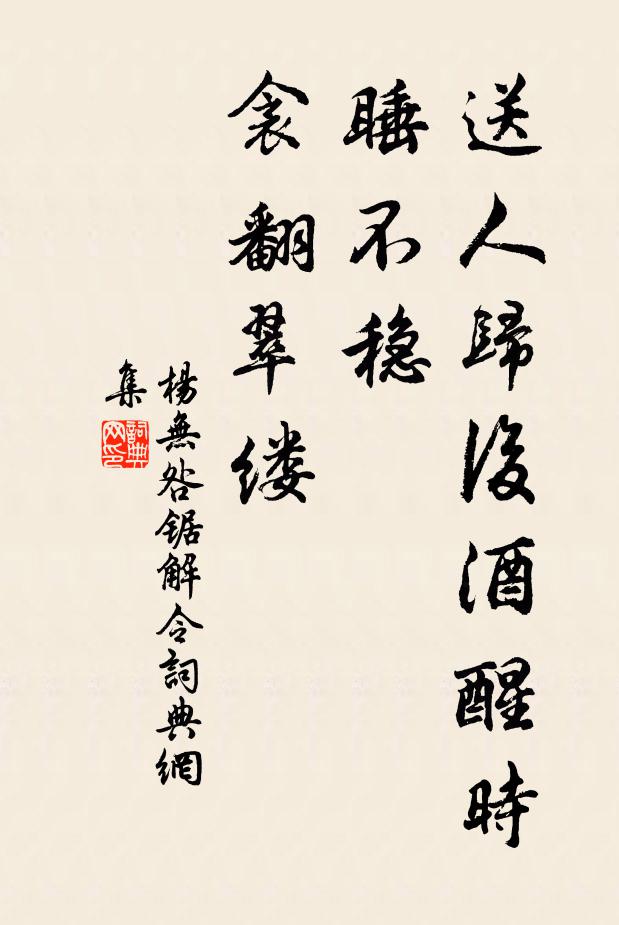 送人歸後酒醒時
睡不稳
衾翻翠缕
楊無咎锯解令詞典網
集
詞典
网印